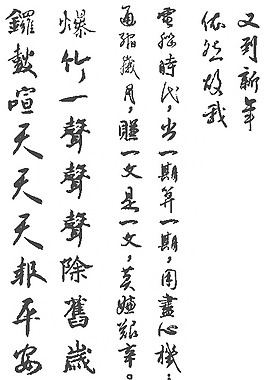 又到新年
依然故我
電腦時代，出一期算一期，用盡心機；
通縮歲月，賺一文是一文，莫嫌艱辛。
爆竹一聲聲聲除舊歲
鑼鼓喧天天天報平安